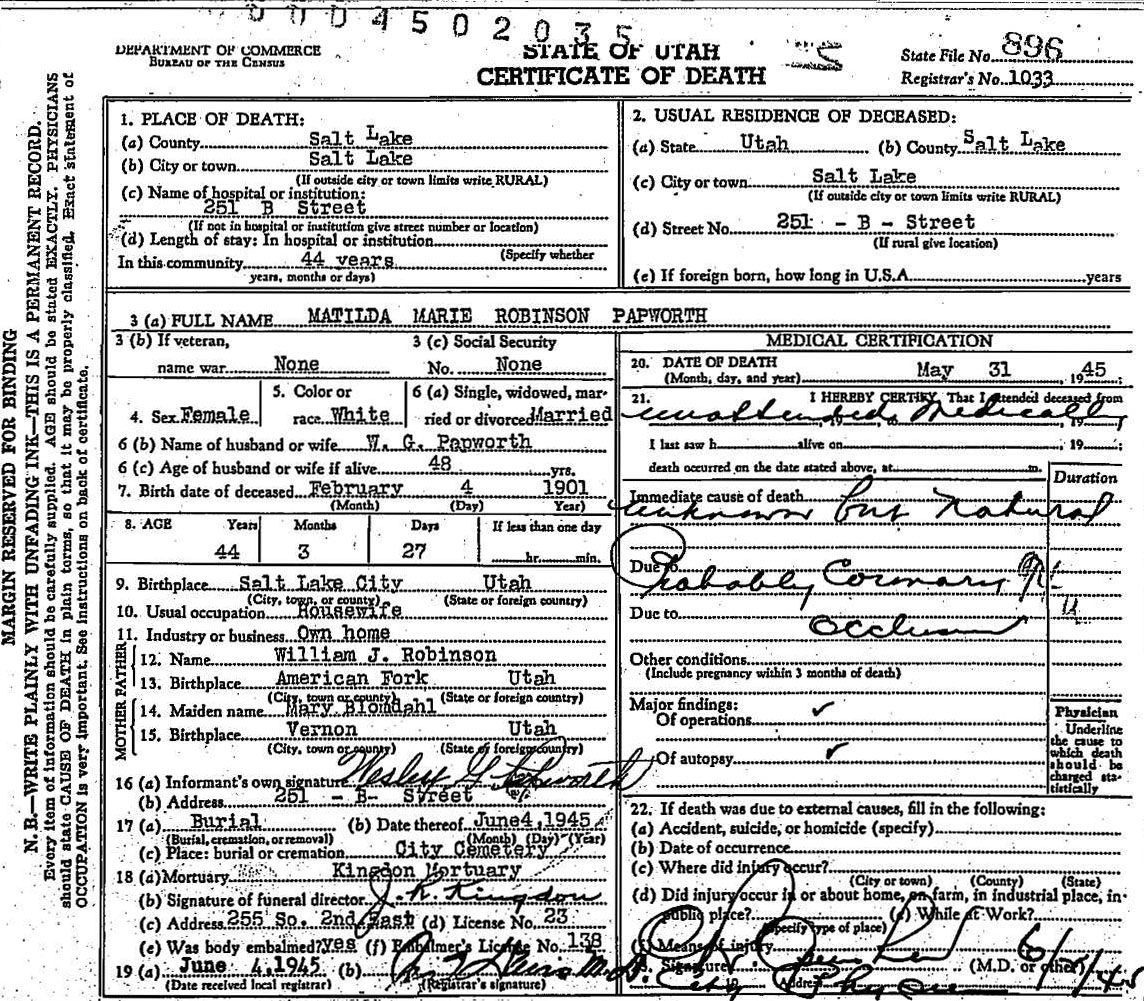 0004502035
DEPARTMENT OF COMMERCE
BUREAU OF THE CENSUS
STATE OF UTAH
CERTIFICATE OF DEATH
State File No. 896
Registrar's No. 1033
MARGIN RESERVED FOR BINDING
N. B.—WRITE PLAINLY WITH UNFADING INK—THIS IS A PERMANENT RECORD.
Every item of information should be carefully supplied. AGE should be stated EXACTLY. PHYSICIANS
should state CAUSE OF DEATH in plain terms, so that it may be properly classified. Exact statement of
OCCUPATION is very important. See instructions on back of certificate.
1. PLACE OF DEATH:
(a) County Salt Lake
(b) City or town Salt Lake
(If outside city or town limits write RURAL)
(c) Name of hospital or institution:
251 B Street
(If not in hospital or institution give street number or location)
(d) Length of stay: In hospital or institution
(Specify whether
In this community 44 years
years, months or days)
2. USUAL RESIDENCE OF DECEASED:
(a) State Utah (b) County Salt Lake
(c) City or town Salt Lake
(If outside city or town limits write RURAL)
(d) Street No. 251 - B - Street
(If rural give location)
(e) If foreign born, how long in U.S.A. years
3 (a) FULL NAME MATILDA MARIE ROBINSON PAPWORTH
3 (b) If veteran,
name war None
3 (c) Social Security
No. None
4. Sex Female
5. Color or
race White
6 (a) Single, widowed, mar-
ried or divorced Married
6 (b) Name of husband or wife W. G. Papworth
6 (c) Age of husband or wife if alive 48 yrs.
7. Birth date of deceased February 4 1901
(Month) (Day) Year)
8. AGE Years Months Days If less than one day
44 3 27 hr. min.
9. Birthplace Salt Lake City Utah
(City, town, or county) (State or foreign country)
10. Usual occupation Housewife
11. Industry or business Own home
FATHER
12. Name William J. Robinson
13. Birthplace American Fork Utah
(City, town or county) (State or foreign country)
MOTHER
14. Maiden name Mary Blomdahl
15. Birthplace Vernon Utah
(City, town or county) (State or foreign country)
16 (a) Informant's own signature Wesley G Papworth
(b) Address 251 - B- Street
17 (a) Burial (b) Date thereof June 4, 1945
(Burial, cremation, or removal) (Month) (Day) (Year)
(c) Place: burial or cremation City Cemetery
18 (a) Mortuary Kingdon Mortuary
(b) Signature of funeral director J. K. Kingdon
(c) Address 255 So. 2nd East (d) License No. 23
(e) Was body embalmed? yes (f) Embalmer's License No. 138
19 (a) June 4, 1945 (b) M.D.
(Date received local registrar) (Registrar's signature)
MEDICAL CERTIFICATION
20. DATE OF DEATH
(Month, day, and year) May 31, 1945;
21. I HEREBY CERTIFY, That I attended deceased from
unattended Medically
, 19 , to , 19 ;
I last saw h alive on , 19 ;
death occurred on the date stated above, at m.
Duration
Immediate cause of death
unknown but Natural
Due to
Probably Coronary
Due to
Occlusion
Other conditions
(Include pregnancy within 3 months of death)
Major findings:
Of operations ✓
Of autopsy ✓
Physician
Underline
the cause to
which death
should be
charged sta-
tistically
22. If death was due to external causes, fill in the following:
(a) Accident, suicide, or homicide (specify)
(b) Date of occurrence
(c) Where did injury occur?
(City or town) (County) (State)
(d) Did injury occur in or about home, on farm, in industrial place, in-
public place? (e) While at Work?
(Specify type of place)
(f) Means of injury
23. Signature (M.D. or other)
Address City Physician